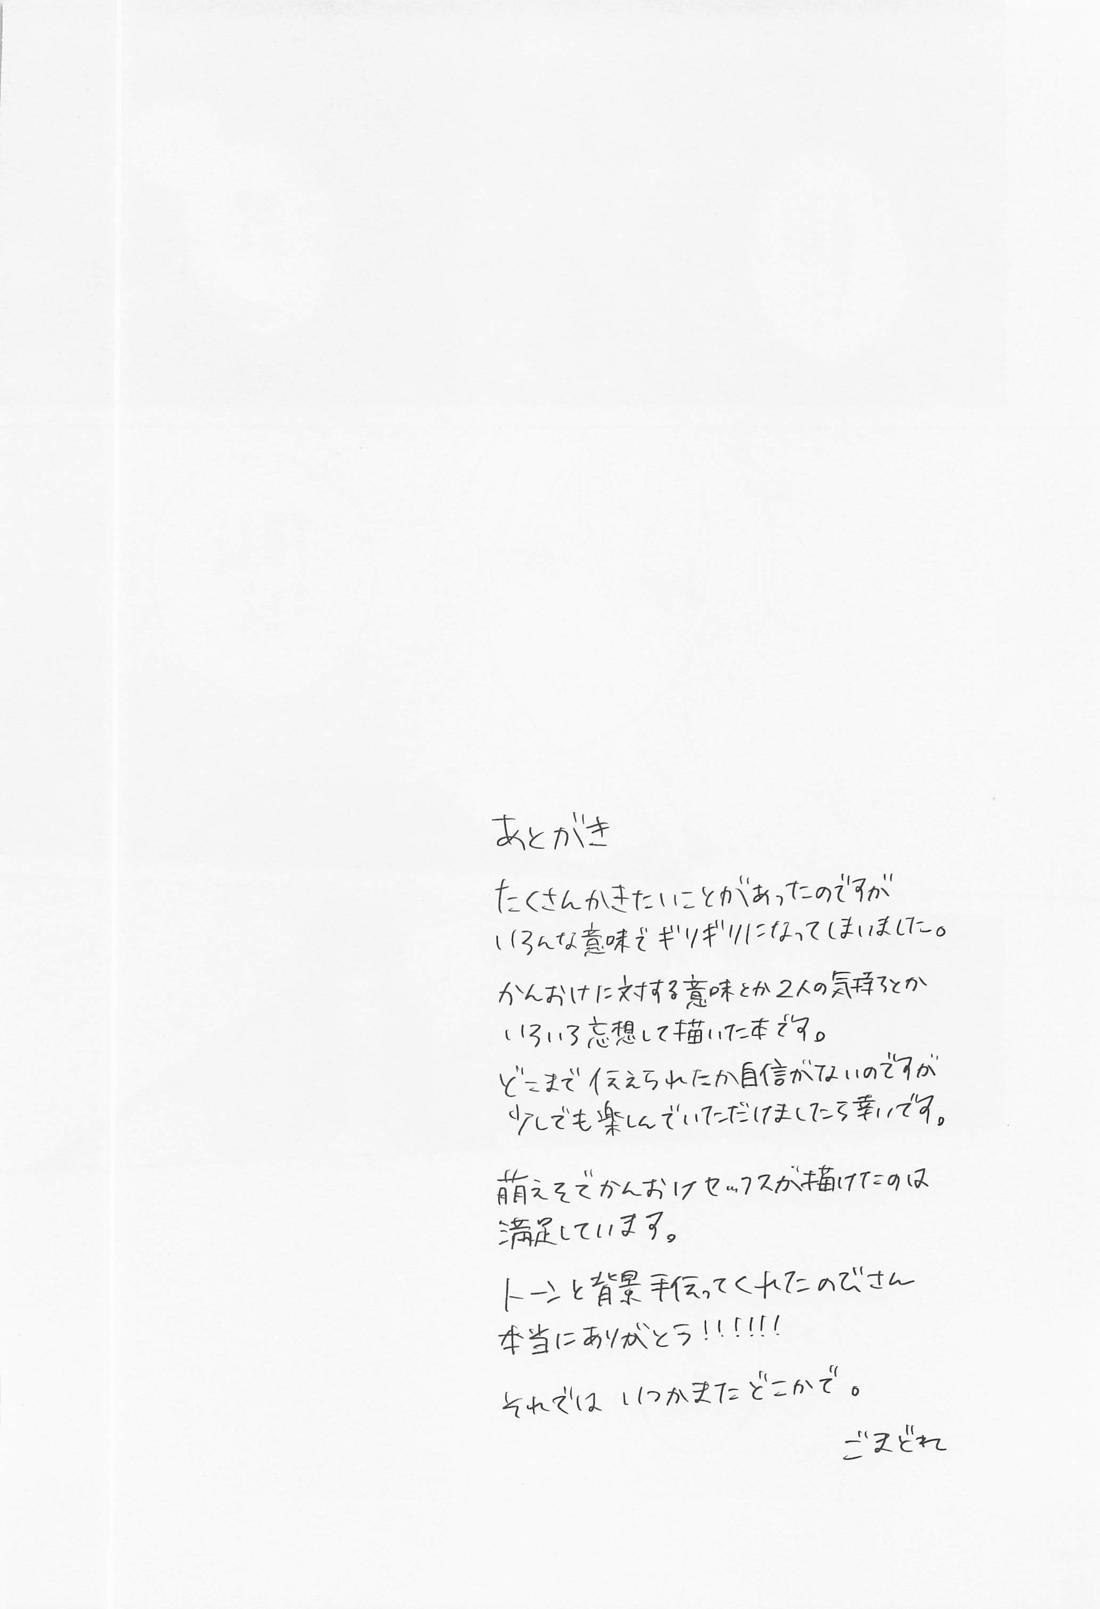 あとがき
たくさんかきたいことがあったのですが
いろんな意味でギリギリになってしまいました。
かんおけに対する意味とか2人の気持ちとか
いろいろ妄想して描いた本です。
どこまで伝えられたか自信がないのですが
少しでも楽しんでいただけましたら幸いです。
萌えそでかんおけセックスが描けたのは
満足しています。
トーンと背景手伝ってくれたのびさん
本当にありがとう!!!!!!
それでは いつかまたどこかで。
ごまどれ